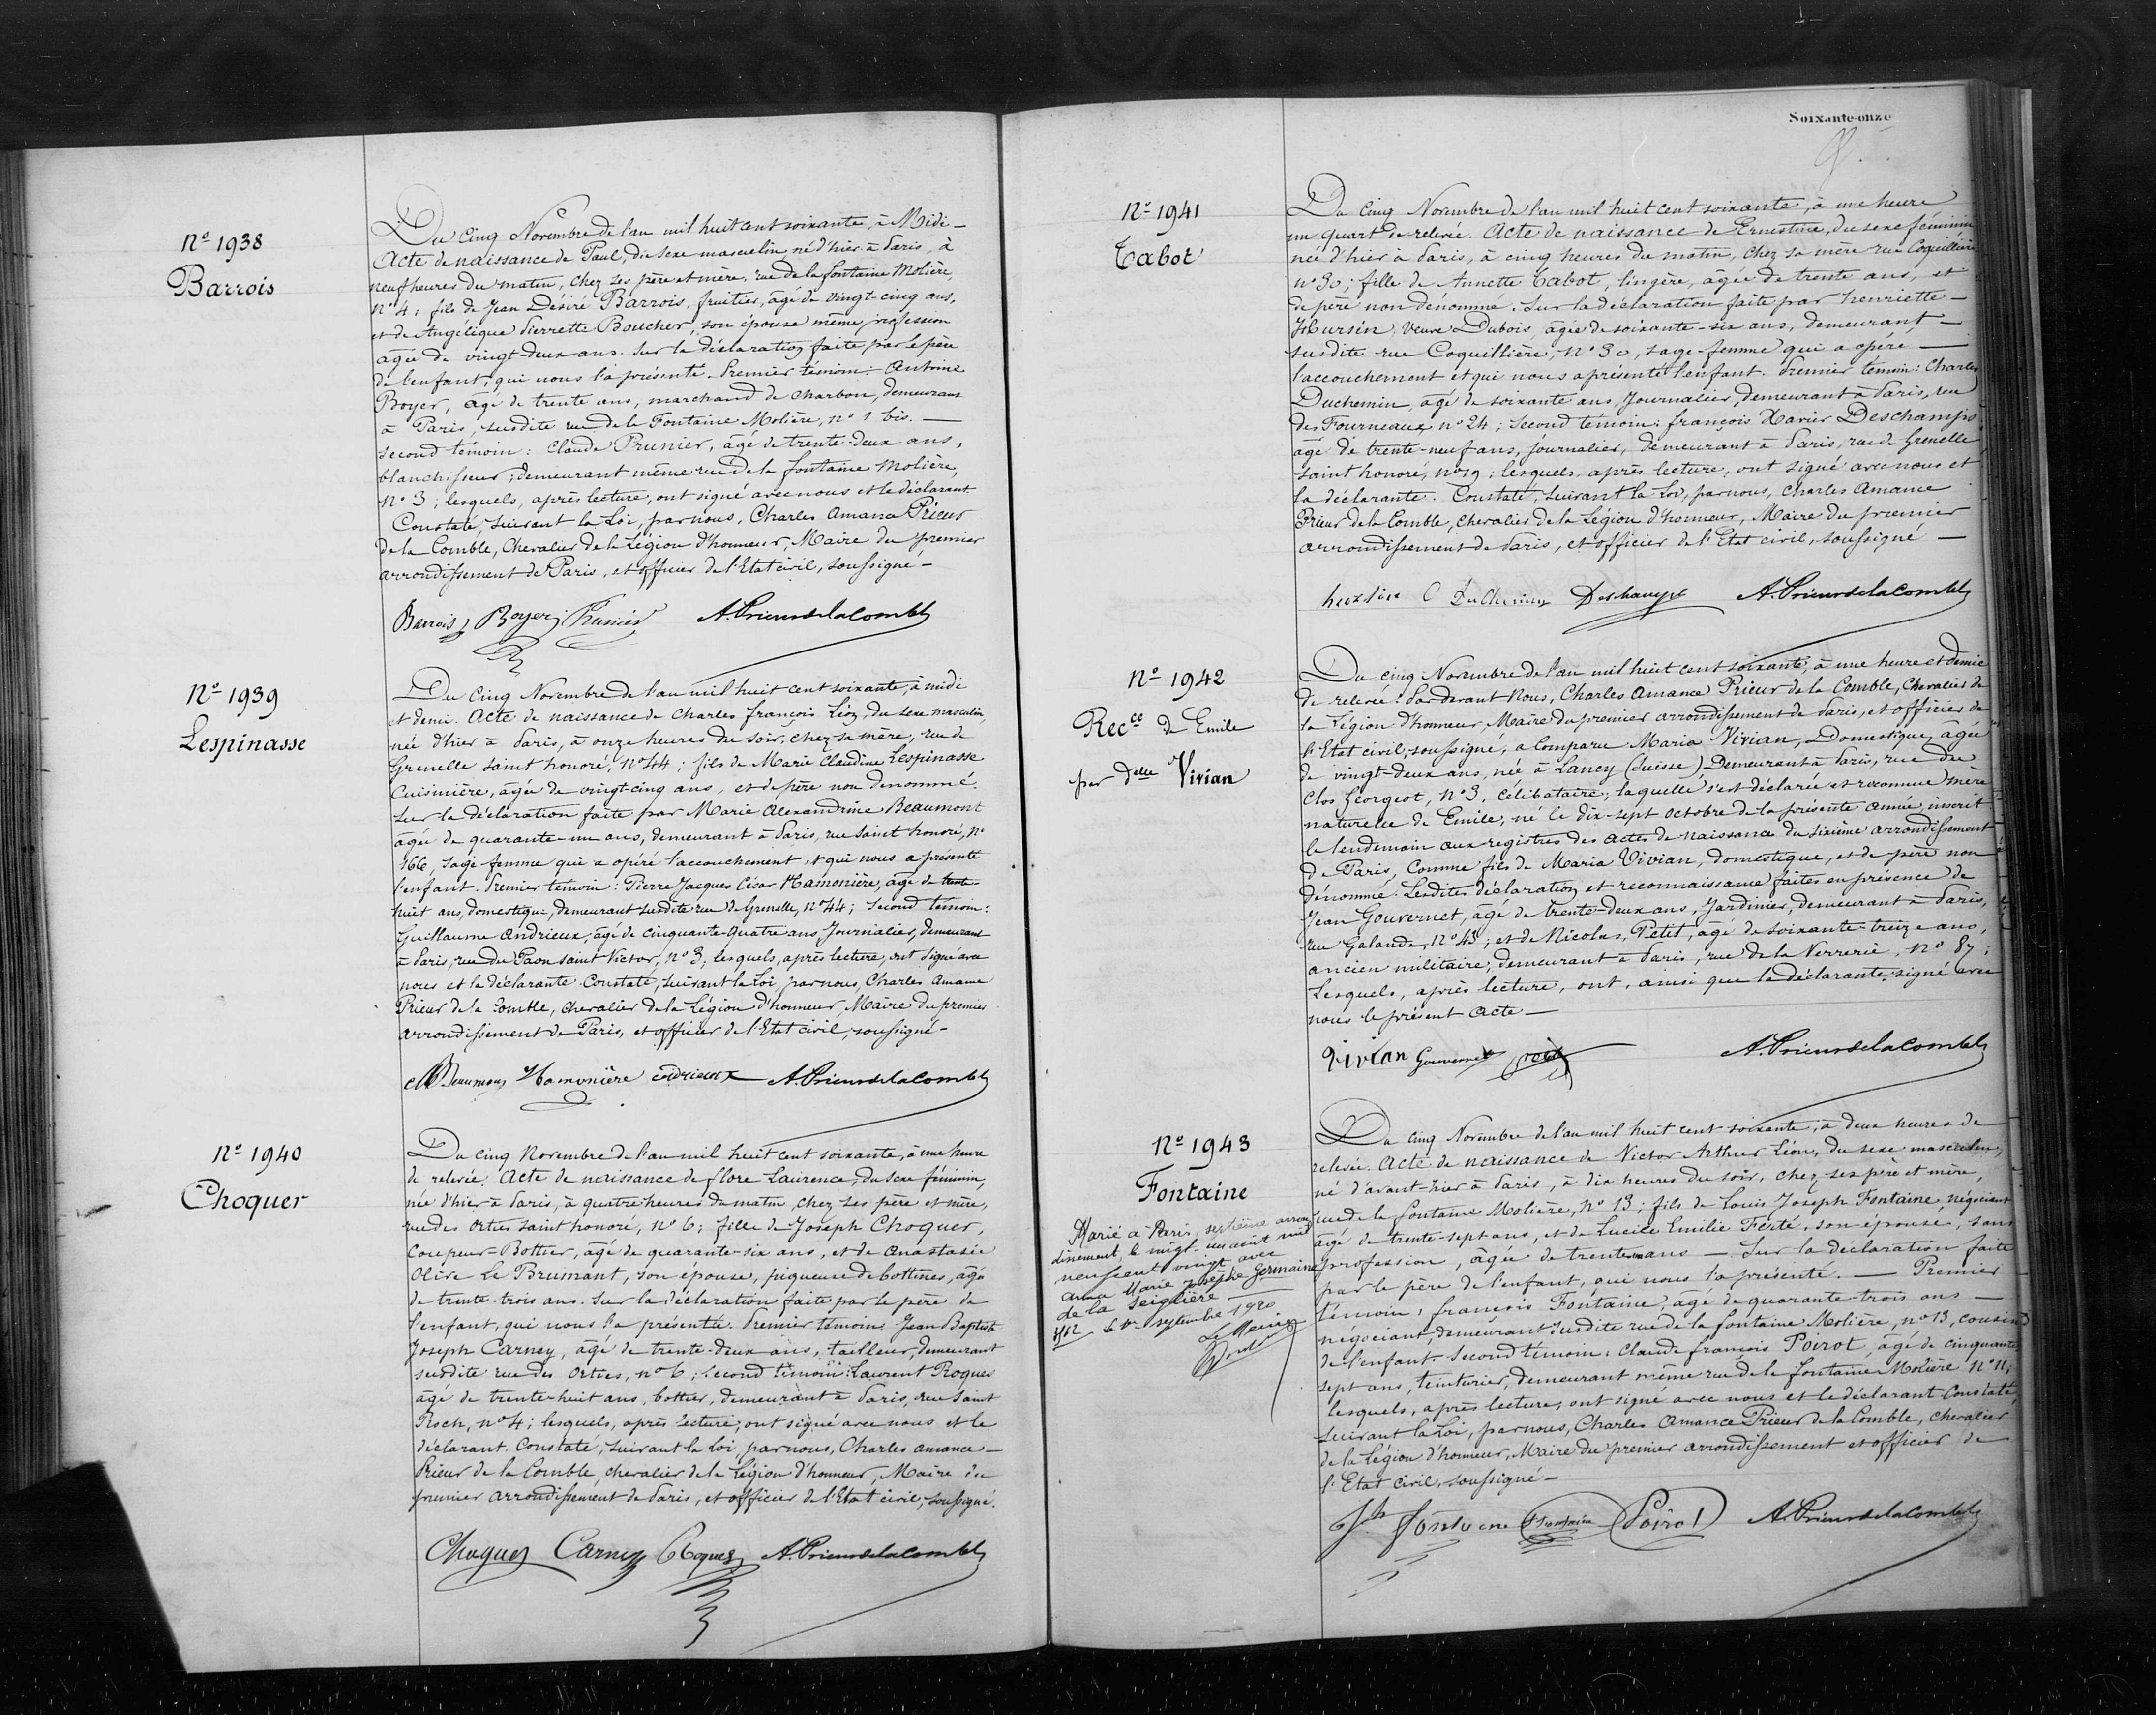 Nº 1938
Barrois
Du cinq Novembre de l'an mil huit cent soixante, à Midi –
Acte de naissance de Paul, du sexe masculin, né d'hier à Paris, à
neuf heures du matin, chez ses père et mère, rue de la fontaine Molière,
nº 4; fils de Jean Désiré Barrois, fruitier, âgé de vingt-cinq ans,
et de Angélique Pierrette Boucher, son épouse même profession
âgée de vingt-deux ans. Sur la déclaration faite par le père
de l'enfant, qui nous l'a présenté. Premier témoin: Antoine
Boyer, âgé de trente ans, marchand de charbon, demeurant
à Paris, susdite rue de la Fontaine Molière, nº 1 bis. —
second témoin: Claude Prunier, âgé de trente-deux ans,
blanchisseur, demeurant même rue de la fontaine Molière,
nº 3; lesquels, après lecture, ont signé avec nous et le déclarant.
Constaté, suivant la Loi, par nous, Charles Amance Prieur
de la Comble, Chevalier de la Légion d'honneur, Maire du premier
arrondissement de Paris, et officier de l'Etat civil, soussigné –
Barrois Boyer Prunier A. Prieur de la Comble
Nº 1939
Lespinasse
Du cinq Novembre de l'an mil huit cent soixante, à midi
et demi. Acte de naissance de Charles françois Léon, du sexe masculin,
née d'hier à Paris, à onze heures du soir, chez sa mère, rue de
Grenelle saint honoré, nº 44; fils de Marie Claudine Lespinasse
Cuisinière, âgée de vingt-cinq ans, et de père non dénommé.
Sur la déclaration faite par Marie Alexandrine Beaumont
âgée de quarante-un ans, demeurant à Paris, rue saint honoré, nº
166, sage femme qui a opéré l'accouchement, & qui nous a présenté
l'enfant. Premier témoin: Pierre Jacques César Hamonière, âgé de trente-
huit ans, domestique, demeurant susdite rue de Grenelle, nº 44; second témoin:
Guillaume Andrieux, âgé de cinquante-quatre ans, Journalier, demeurant
à Paris, rue du Paon saint Victor, nº 3, lesquels, après lecture, ont signé avec
nous et la déclarante. Constaté, suivant la Loi, par nous, Charles Amance
Prieur de la Comble, Chevalier de la Légion d'honneur, Maire du premier
arrondissement de Paris, et officier de l'Etat civil, soussigné –
Beaumont Hamonière Andrieux A. Prieur de la Comble
Nº 1940
Choquer
Du cinq Novembre de l'an mil huit cent soixante, à une heure
de relevée. Acte de naissance de flore Laurence, du sexe féminin,
née d'hier à Paris, à quatre heures du matin, chez ses père et mère,
rue des Orties saint honoré, nº 6; fille de Joseph Choquer,
Coupeur-Bottier, âgé de quarante-six ans, et de Anastasie
Olive Le Brumant, son épouse, piqueuse de bottines, âgée
de trente-trois ans. Sur la déclaration faite par le père de
l'enfant, qui nous l'a présentée. Premier témoin: Jean Baptiste
Joseph Carney, âgé de trente-deux ans, tailleur, demeurant
susdite rue des Orties, nº 6; second témoin: Laurent Roques
âgé de trente-huit ans, bottier, demeurant à Paris, rue saint
Roch, nº 4; lesquels, après lecture, ont signé avec nous et le
déclarant. Constaté, suivant la Loi, par nous, Charles Amance –
Prieur de la Comble, chevalier de la Légion d'honneur, Maire du
premier arrondissement de Paris, et officier de l'Etat civil, soussigné.
Choquer Carney Roques A. Prieur de la Comble
Soixante-onze
Nº 1941
Tabot
Du cinq Novembre de l'an mil huit cent soixante, à une heure
un quart de relevée. Acte de naissance de Ernestine, du sexe féminin
née d'hier à Paris, à cinq heures du matin, chez sa mère rue Coquillière
nº 30; fille de Annette Tabot, lingère, âgée de trente ans, et
de père non dénommé. Sur la déclaration faite par henriette –
Hursin, Veuve Dubois, âgée de soixante-six ans, demeurant –
susdite rue Coquillière, nº 30, sage-femme qui a opéré —
l'accouchement et qui nous a présenté l'enfant. Premier témoin: Charles
Duchemin, âgé de soixante ans, Journalier, demeurant à Paris, rue
des Fourneaux nº 24; second témoin: françois Xavier Deschamps
âgé de trente-neuf ans, journalier, demeurant à Paris, rue de Grenelle
saint honoré, nº 19; lesquels, après lecture, ont signé avec nous et
la déclarante. Constaté, suivant la Loi, par nous, Charles Amance
Prieur de la Comble, chevalier de la Légion d'honneur, Maire du premier
arrondissement de Paris, et officier de l'Etat civil, soussigné —
C Duchemin Deschamps A. Prieur de la Comble
Nº 1942
Rec.ce de Emile
par Delle Vivian
Du cinq Novembre de l'an mil huit cent soixante, à une heure et demie
de relevée. Par devant Nous, Charles Amance Prieur de la Comble, Chevalier de
la Légion d'honneur, Maire du premier arrondissement de Paris, et officier de
l'Etat civil, soussigné, a Comparu Maria Vivian, Domestique, âgée
de vingt-deux ans, née à Lancy (Suisse) Demeurant à Paris, rue du
Clos Georgeot, nº 3, célibataire; laquelle s'est déclarée et reconnue mère
naturelle de Emile, né le dix-sept octobre de la présente année, inscrit
le lendemain aux registres des actes de naissance du sixième arrondissement
de Paris, comme fils de Maria Vivian, domestique, et de père non
dénommé. Lesdites déclaration et reconnaissance faites en présence de
Jean Gouvernet, âgé de trente-deux ans, Jardinier, demeurant à Paris,
rue Galande, nº 43; et de Nicolas Petit, âgé de soixante-treize ans,
ancien militaire, demeurant à Paris, rue de la Verrerie, nº 87;
Lesquels, après lecture, ont, ainsi que la déclarante, signé avec
nous le présent acte —
Vivian Gouvernet Petit A. Prieur de la Comble
Nº 1943
Fontaine
Marié à Paris, septième arron
dissement, le vingt-un août mil
neuf cent vingt avec
Anna Marie Josèphe Germaine
de la Seiglière —
Le 1er septembre 1920
Le Maire
Du cinq Novembre de l'an mil huit cent soixante, à deux heures de
relevée. Acte de naissance de Victor Arthur Léon, du sexe masculin,
né d'avant-hier à Paris, à dix heures du soir, chez ses père et mère,
rue de la fontaine Molière, nº 13; fils de Louis Joseph Fontaine, négociant
âgé de trente-sept ans, et de Lucile Emilie Ferté, son épouse, sans
profession, âgée de trente-un ans — Sur la déclaration faite
par le père de l'enfant, qui nous l'a présenté. — Premier
témoin, françois Fontaine, âgé de quarante-trois ans —
négociant, demeurant susdite rue de la fontaine Molière, nº 13, cousin
de l'enfant. Second témoin: Claude françois Poirot, âgé de cinquante
sept ans, teinturier, demeurant même rue de la fontaine Molière nº 11,
lesquels, après lecture, ont signé avec nous et le déclarant. Constaté,
suivant la Loi, par nous, Charles Amance Prieur de la Comble, chevalier
de la Légion d'honneur, Maire du premier arrondissement et officier de
l'Etat civil, soussigné –
Fontaine Fontaine Poirot A. Prieur de la Comble